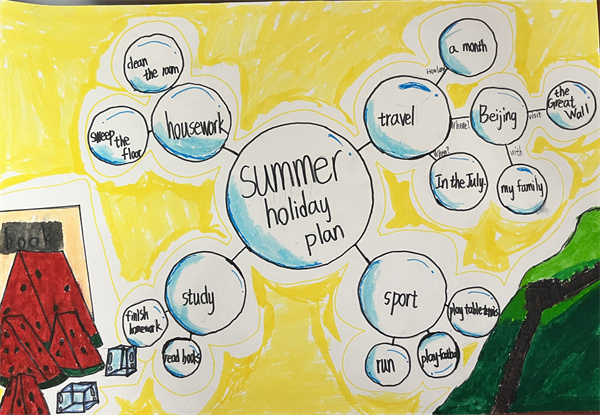 clean
the room
sweep
the
floor
housework
summer
holiday
plan
travel
How long
a month
Where?
Beijing
visit
the
Great
Wall
with
my family
When?
In the July.
study
finish
homework
read books
sport
play table tennis
play football
run
book